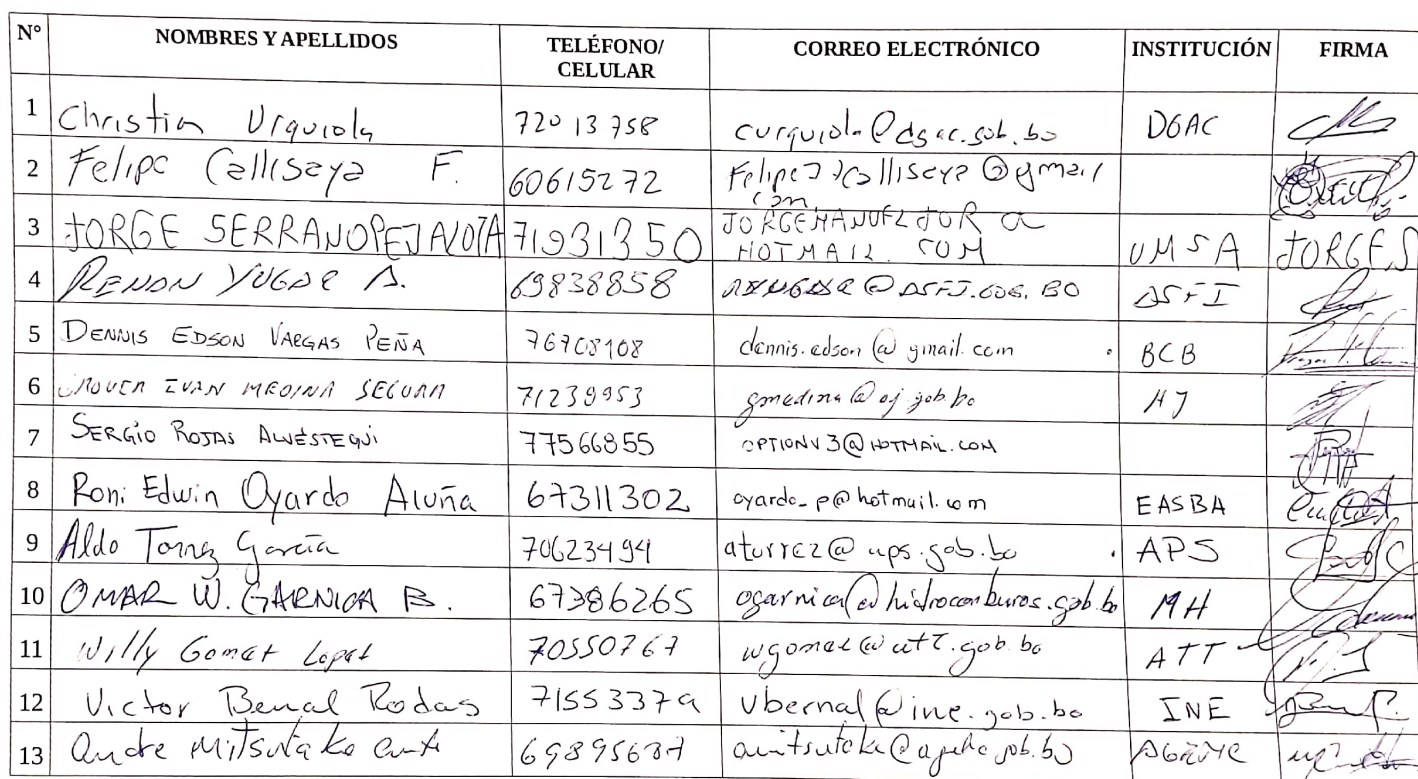 N° NOMBRES Y APELLIDOS TELÉFONO/ CELULAR CORREO ELECTRÓNICO INSTITUCIÓN FIRMA
1 Christian Urquiola 72013758 curquiola@dgac.gob.bo DGAC
2 Felipe Callisaya F. 60615272
3 JORGE SERRANO 71931350 JORGEMANUELJOR a
HOTMAIL. COM UMSA JORGE.S
4 RENAN YUGAR A. 69838858 ASFI
5 DENNIS EDSON VARGAS PEÑA 76708108 dennis.edson@gmail.com BCB
6 IVAN MEDINA SEGURA 71239953 gmedina@aj.gob.bo AJ
7 SERGIO ROJAS 77566855 OPTIONV3@HOTMAIL.COM
8 Roni Edwin Oyardo Acuña 67311302 oyardo_p@hotmail.com EASBA
9 Aldo Torrez García 70623494 atorrez@aps.gob.bo APS
10 OMAR W. GARNICA B. 67386265 ogarnica@hidrocarburos.gob.bo MH
11 Willy Gomez Lopez 70550767 wgomez@att.gob.bo ATT
12 Victor Bernal Rodas 71553379 vbernal@ine.gob.bo INE
13 Andre Mitsutake